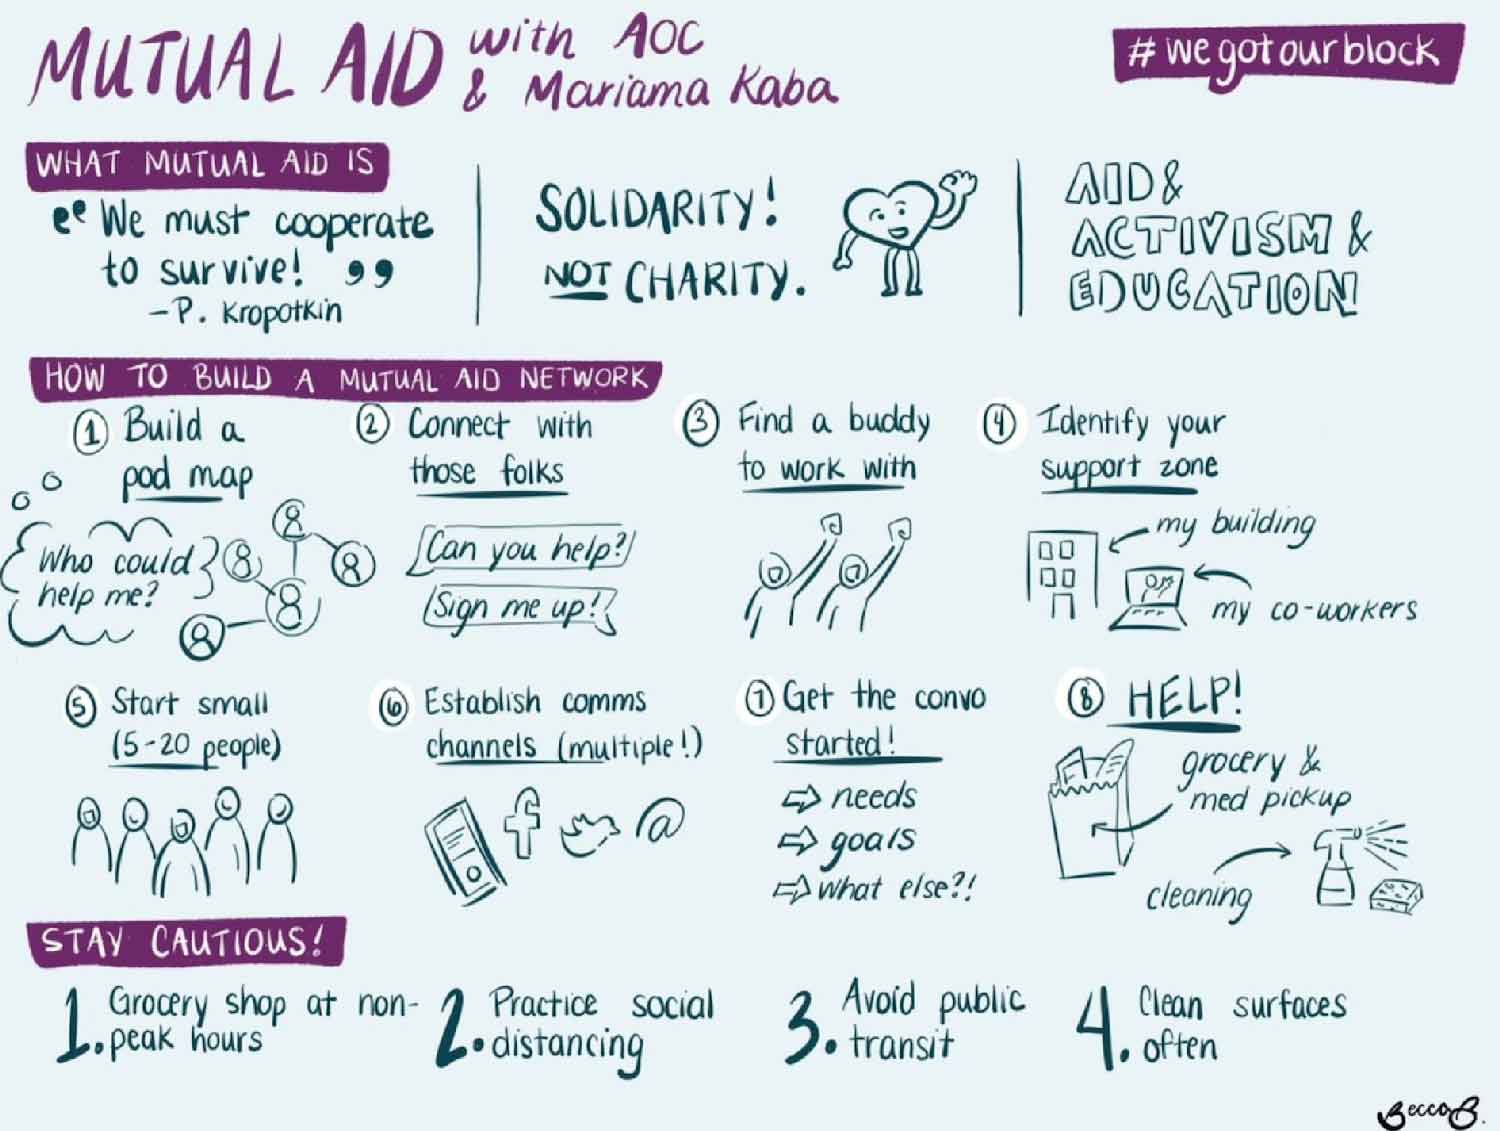 MUTUAL AID with AOC
& Mariama Kaba
#wegotourblock
WHAT MUTUAL AID IS
"We must cooperate
to survive!"
- P. Kropotkin
SOLIDARITY!
NOT CHARITY.
AID &
ACTIVISM &
EDUCATION!
HOW TO BUILD A MUTUAL AID NETWORK
1 Build a
pod map
Who could
help me?
2 Connect with
those folks
Can you help?
Sign me up!
3 Find a buddy
to work with
4 Identify your
support zone
my building
my co-workers
5 Start small
(5-20 people)
6 Establish comms
channels (multiple!)
f
@
7 Get the convo
started!
⇨ needs
⇨ goals
⇨ what else?!
8 HELP!
grocery &
med pickup
cleaning
STAY CAUTIOUS!
1. Grocery shop at non-
peak hours
2. Practice social
distancing
3. Avoid public
transit
4. Clean surfaces
often
Becca B.